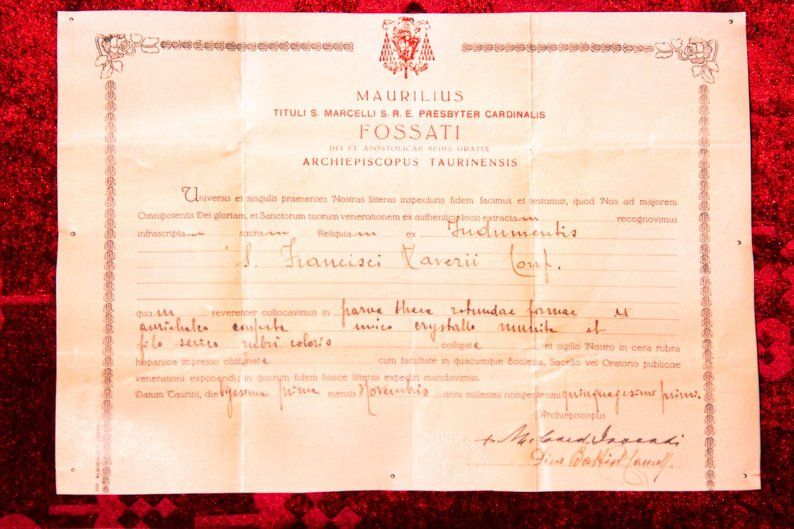 MAURILIUS
TITULI S. MARCELLI S. R. E. PRESBYTER CARDINALIS
FOSSATI
DEI ET APOSTOLICAE SEDIS GRATIA
ARCHIEPISCOPUS TAURINENSIS
Universis et singulis praesentes Nostras litteras inspecturis fidem facimus et testamur, quod Nos ad majorem
Omnipotentis Dei gloriam, et Sanctorum suorum venerationem ex authenticis locis extractam recognovimus
infrascriptam sacram Reliquiam ex Indumentis
S. Francisci Xaverii Conf.
quam reverenter collocavimus in parva theca rotundae formae ex
aurichalco confecta unico crystallo munita et
filo serico rubri coloris colligata, et sigillo Nostro in cera rubra
hispanica impresso obsignata cum facultate in quacumque Ecclesia, Sacello vel Oratorio publicae
venerationi exponendi; in quorum fidem hasce litteras expediri mandavimus.
Datum Taurini, die vigesima prima mensis Novembris anni millesimi nongentesimi quinquagesimi primi.
Archiepiscopus
+ M. Card. Fossati